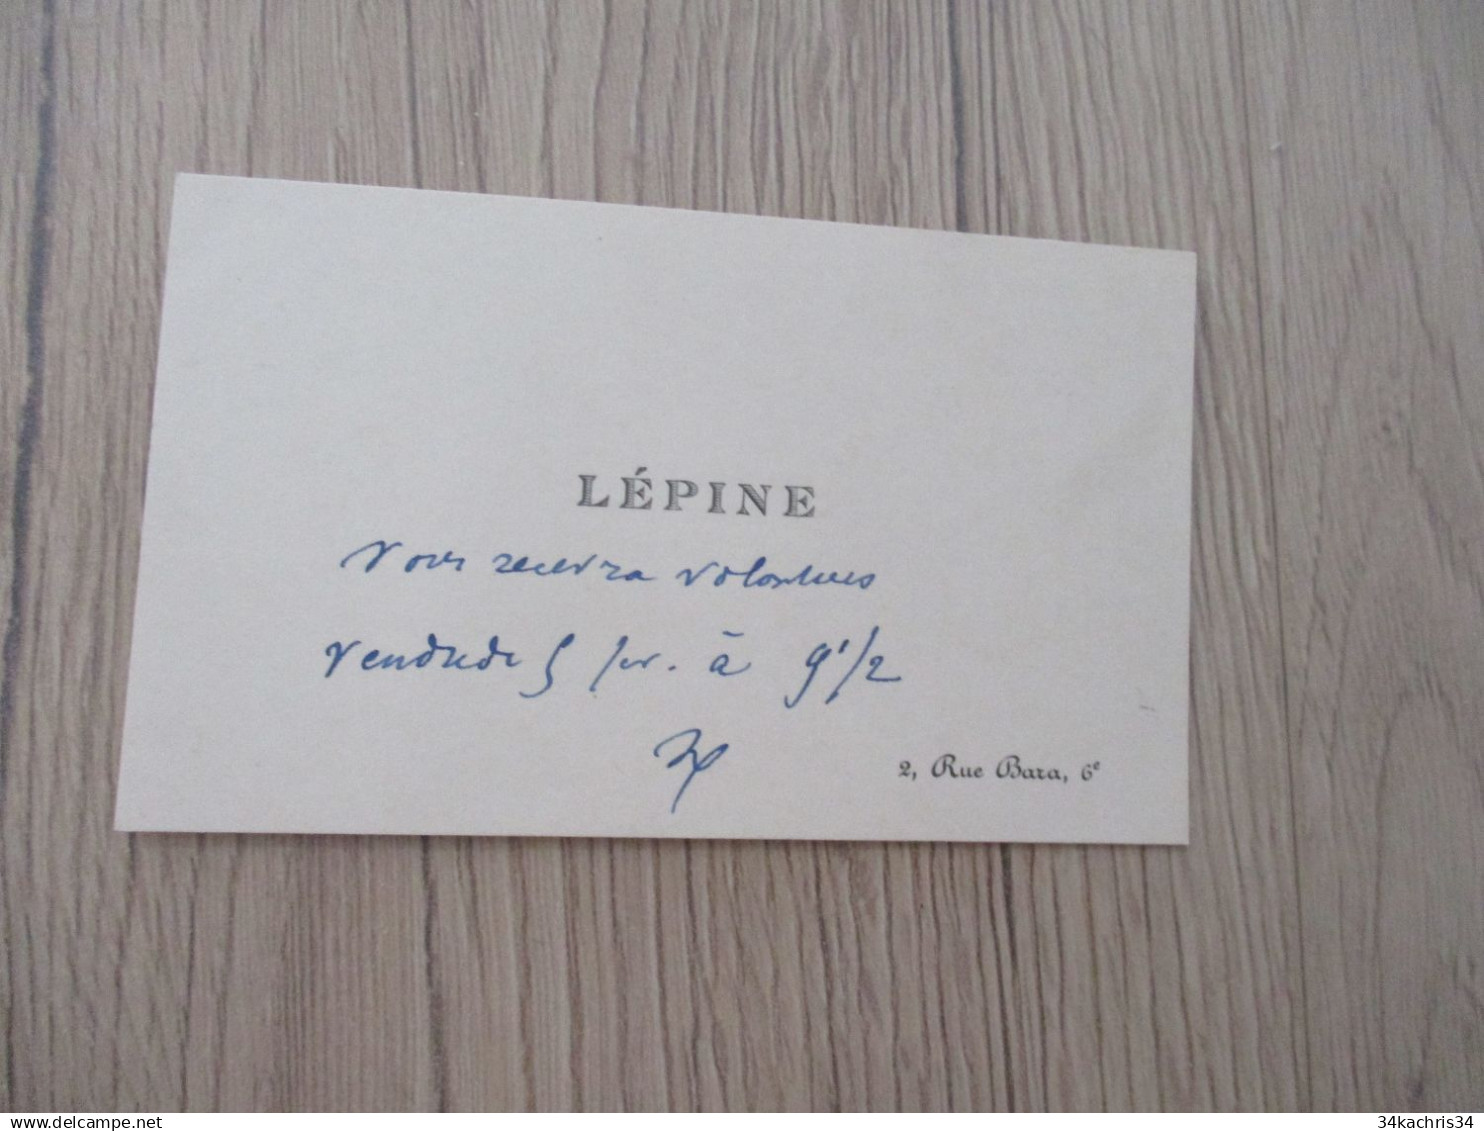 LÉPINE
Vous recevra volontiers
vendredi 5 à 9 1/2
2, Rue Bara, 6e
www.delcampe.net
34kachris34